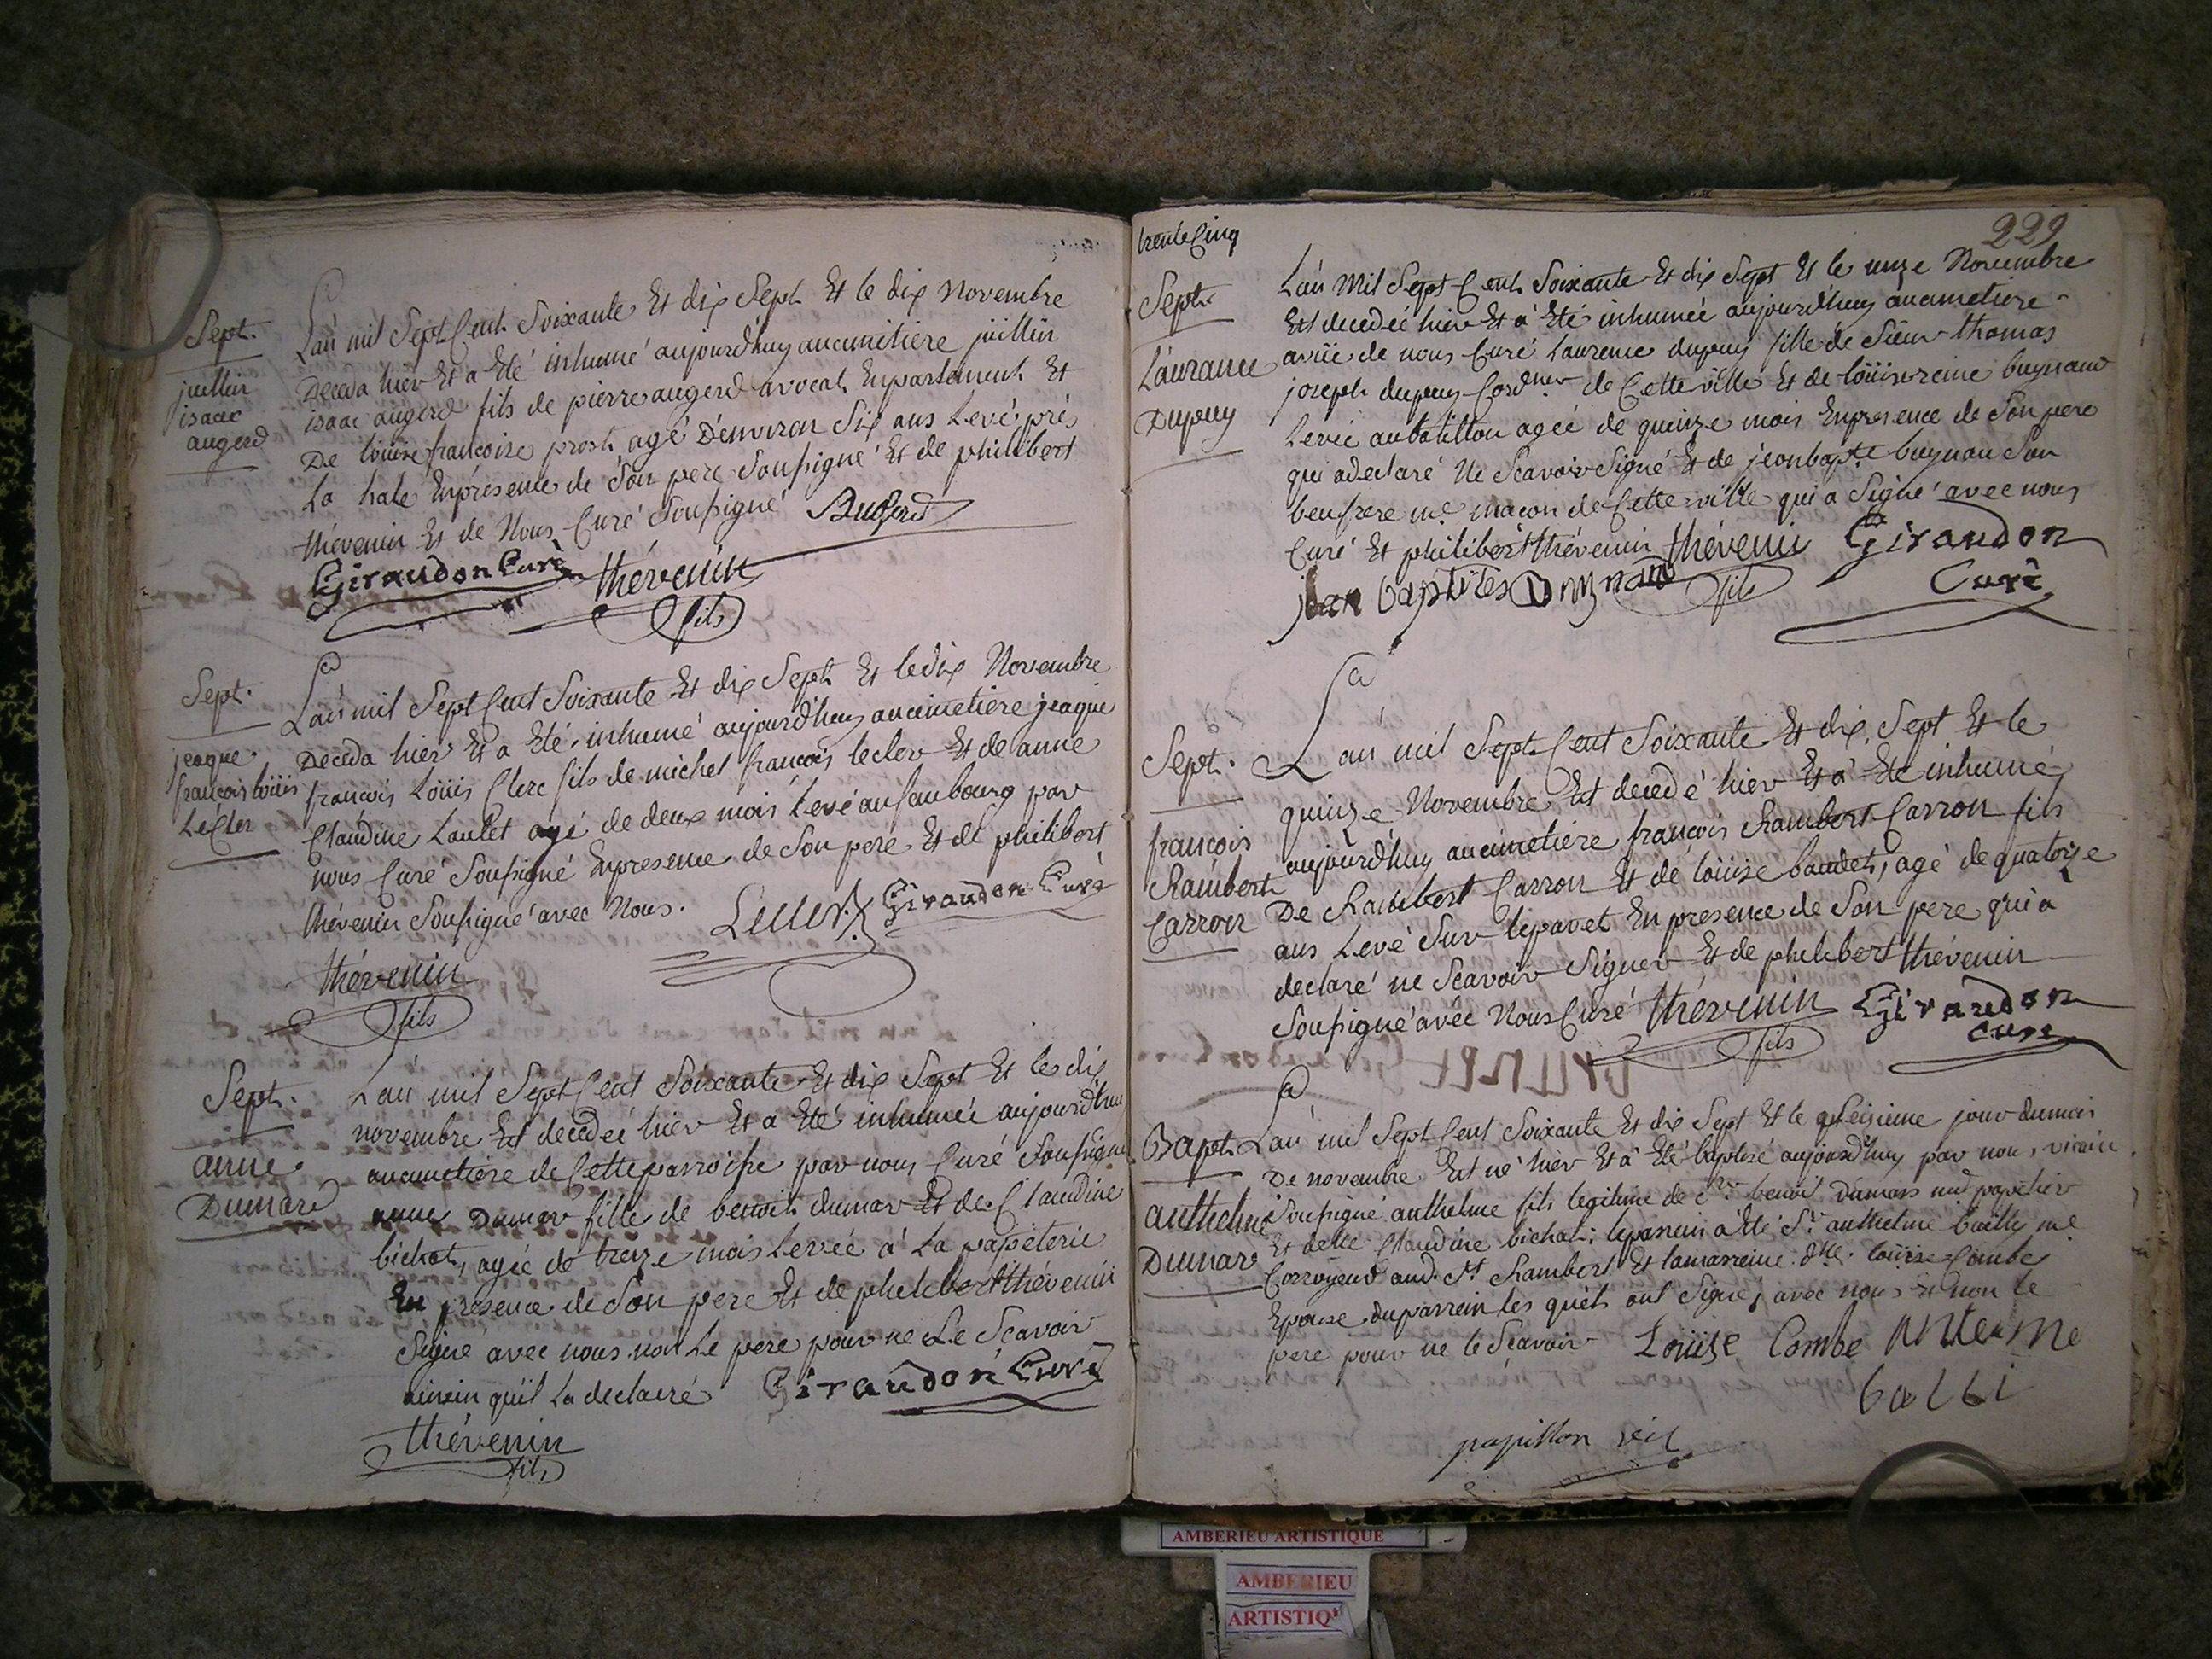 Sept.
juillin
isaac
augerd
L'an mil Sept Cent Soixante Et dix Sept Et le dix Novembre
Deceda hier Et a Eté inhumé aujourd'huy au cimetiere juillin
isaac augerd fils de pierre augerd avocat En parlement Et
De loüise francoise prost, agé D'environ Six ans Levé prés
La hale En présence de Son pere Soussigné Et de philibert
thévenin Et de Nous Curé Soussigné Augerd
Giraudon Curé thévenin
fils
Sept.
jeaque
francois loüis
LeCler
L'an mil Sept Cent Soixante Et dix Sept Et le dix Novembre
Deceda hier Et a Eté inhumé aujourd'huy au cimetiere jeaque
francois Loüis Clerc fils de michel francois lecler Et de anne
Claudine Laulet agé de deux mois Levé au faubourg par
nous Curé Soussigné En presence de Son pere Et de philibert
thévenin Soussigné avec Nous. Lecler Giraudon Curé
thévenin
fils
Sept.
anne
Dumare
L'an mil Sept Cent Soixante Et dix Sept Et le dix
novembre Est decedeé hier Et a Eté inhumeé aujourd'huy
au cimetiere de Cette parroisse par nous Curé Soussigné
anne Dumar fille de benoit dumar Et de Claudine
bichat, agée de treize mois Levée a La papéterie
En présence de Son pere Et de philibert thévenin
Signé avec nous non Le pere pour ne Le Scavoir
ainsin quil La declairé Giraudon Curé
thévenin
fils
trente Cinq
229
Sept.
Laurance
Dupuy
L'an Mil Sept Cent Soixante Et dix Sept Et le unze Novembre
Est decedeé hier Et a Eté inhumeé aujourd'huy au cimetiere
de nous Curé Laurence dupuy fille de Sieur thomas
joseph dupuy Cordner de Cette ville Et de loüise reine buynand
Levée au batillon agée de quinze mois En presence de Son pere
qui a declaré Ne Scavoir Signé Et de jean bapte buynan Son
beufrere me macon de Cette ville qui a Signé avec nous
Curé Et philibert thévenin thévenin Giraudon
fils Curé
Sept.
francois
Rambert
Carron
L'an mil Sept Cent Soixante Et dix Sept Et le
quinze Novembre Est decedé hier Et a Eté inhumé
aujourd'huy au cimetiere francois Rambert Carron fils
De Rambert Carron Et de loüise baudet, agé de quatorze
ans Levé Sur le pavet En presence de Son pere qui a
declaré ne Scavoir Signer Et de philibert thévenin
Soussigné avec Nous Curé thévenin Giraudon
fils Curé
Bapt.
anthelme
Dumar
L'an mil Sept Cent Soixante Et dix Sept Et le jour du mois
De novembre Est né hier Et a Eté baptisé aujourd'huy par nous vicaire
Soussigné anthelme fils legitime de benoit Dumars md papetier
Et delle Claudine bichat: le parrein a été Sr anthelme bailly me
Corroyeur aud. St Rambert Et la marreine dlle. loüise Combe
Epouse du parrein les quels ont Signé, avec nous Et non le
pere pour ne le Scavoir Loüise Combe Antelme
balli
papillon vic
AMBERIEU ARTISTIQUE
AMBERIEU
ARTISTIQ